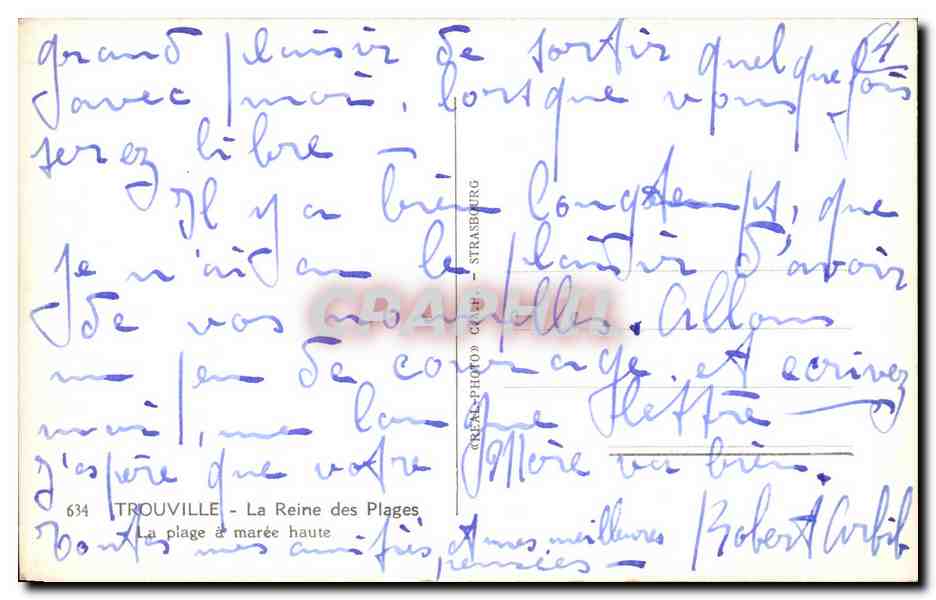 64
grand plaisir de sortir quelquefois
avec moi, lorsque vous
serez libre —
Il y a bien longtemps, que
je n'ai eu le plaisir d'avoir
de vos nouvelles. Allons
un peu de courage, et écrivez
moi, une longue lettre
J'espère que votre Mère va bien.
634 TROUVILLE - La Reine des Plages
La plage à marée haute
Toutes mes amitiés, et mes meilleures
pensées —
Robert Arbib
«REAL-PHOTO» C.A.P. - STRASBOURG
CPAPHIL